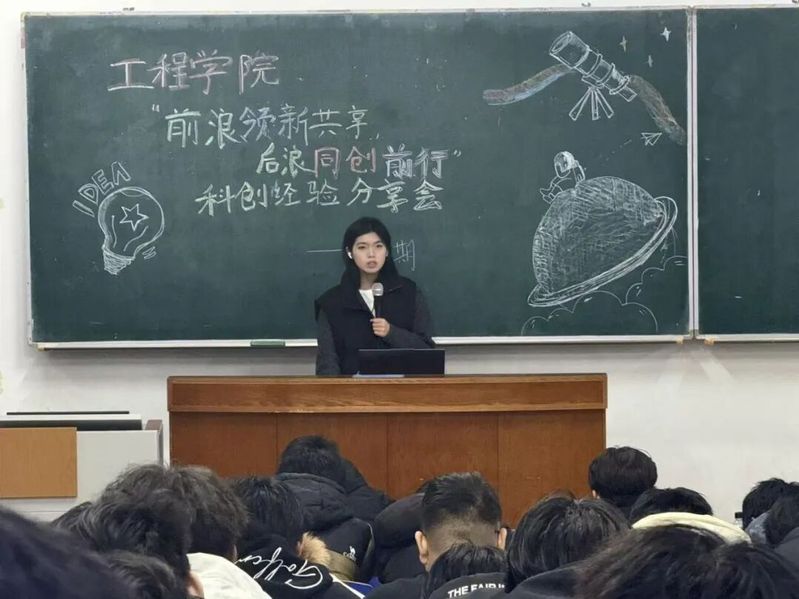 工程学院
“前浪领新共享，
后浪同创前行”
科创经验分享会
期
IDEA
THE FAIR